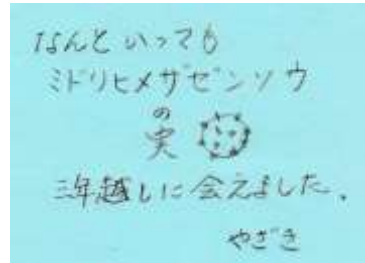 なんといっても
ミドリヒメザゼンソウ
の
実
三年越しに会えました.
やざき